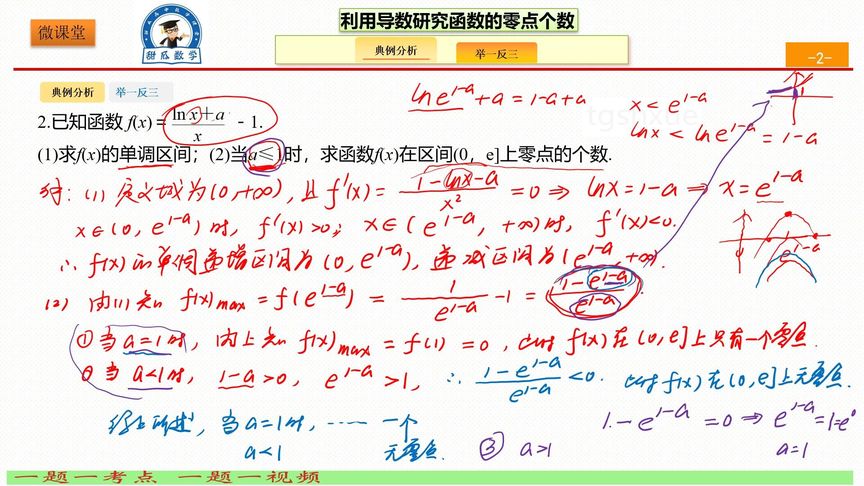 微课堂
甜瓜数学
利用导数研究函数的零点个数
典例分析 举一反三
-2-
典例分析 举一反三
ln e^{1-a} + a = 1-a+a
x < e^{1-a}
ln x < ln e^{1-a} = 1-a
2.已知函数 f(x) = (ln x + a)/x - 1.
(1)求f(x)的单调区间；(2)当a≤1时，求函数f(x)在区间(0，e]上零点的个数.
解：(1) 定义域为(0,+∞)，且 f'(x) = (1-lnx-a)/x² = 0 ⇒ lnx = 1-a ⇒ x = e^{1-a}
x∈(0, e^{1-a})时，f'(x)>0；x∈(e^{1-a}, +∞)时，f'(x)<0.
∴ f(x)的单调递增区间为(0, e^{1-a})，递减区间为(e^{1-a}, +∞).
e^{1-a}
(2) 由(1)知 f(x)max = f(e^{1-a}) = 1/e^{1-a} - 1 = (1-e^{1-a})/e^{1-a}.
①当a=1时，由上知 f(x)max = f(1) = 0，此时f(x)在(0,e]上只有一个零点.
②当a<1时，1-a>0，e^{1-a}>1，∴ (1-e^{1-a})/e^{1-a} <0. 此时f(x)在(0,e]上无零点.
综上所述，当a=1时，…… 一个
a<1 无零点.
1-e^{1-a} = 0 ⇒ e^{1-a} = 1 = e^0
③ a>1
a=1
一题一考点 一题一视频